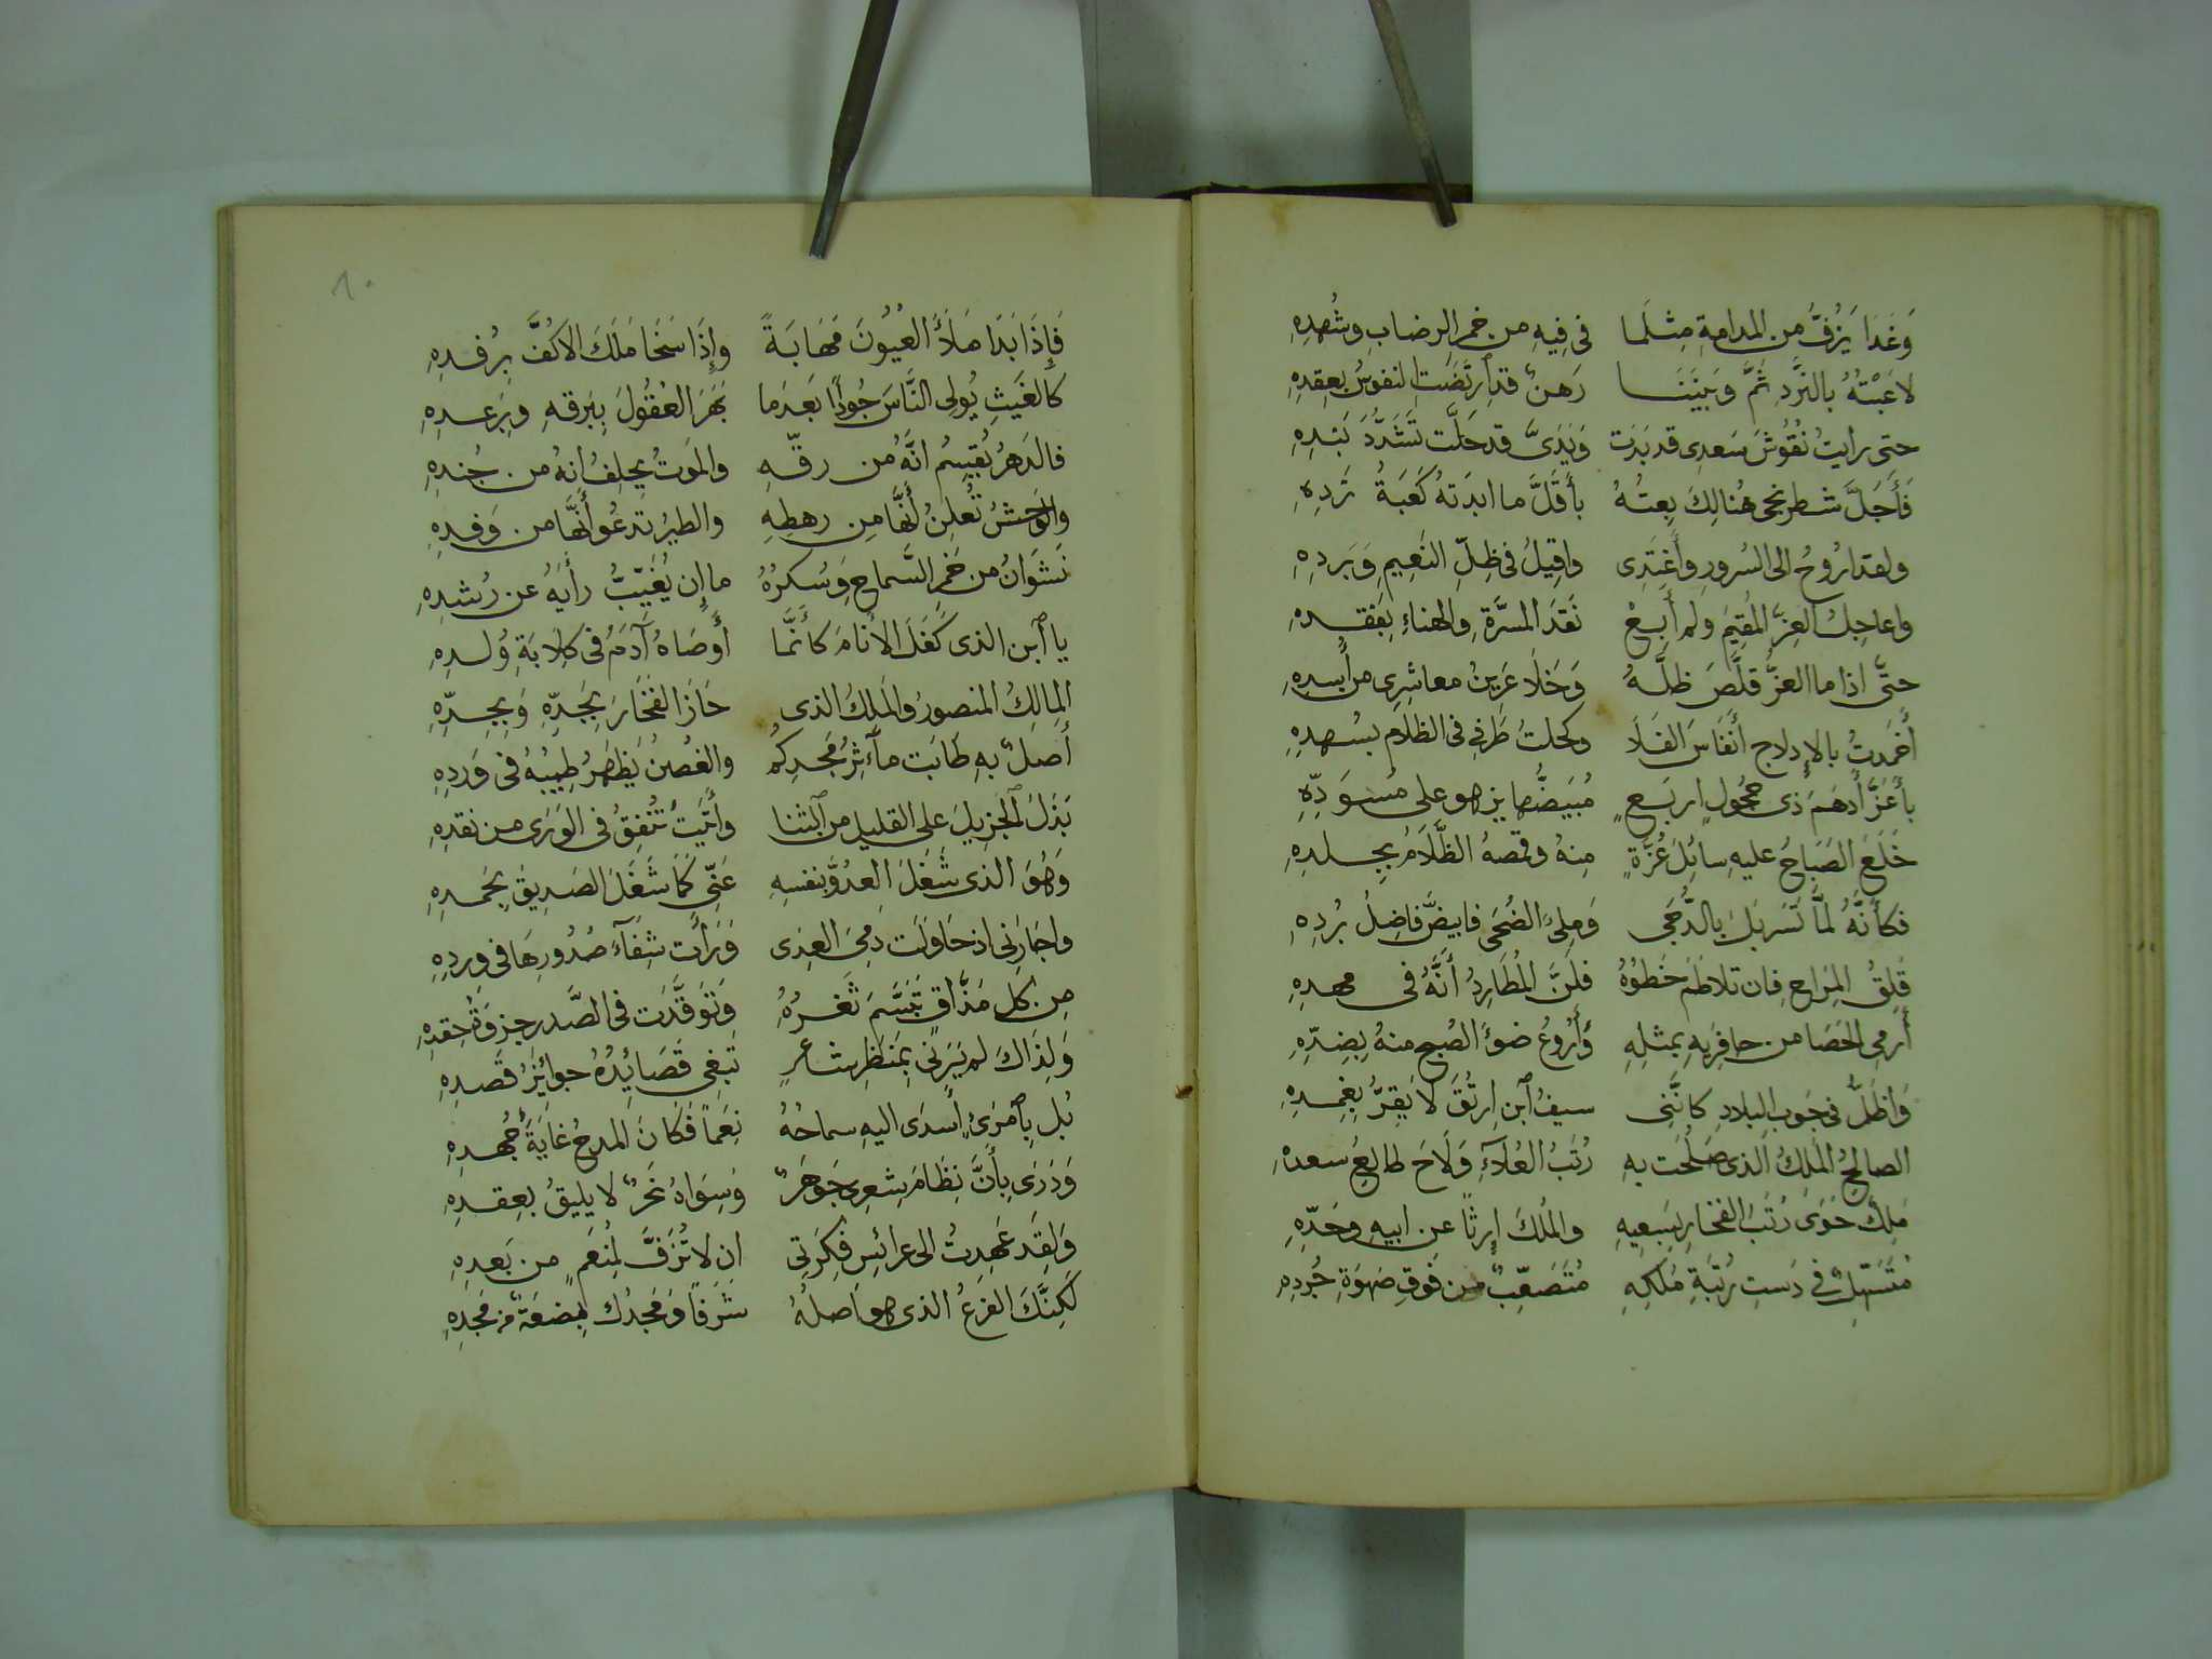 وَغَدَا يَزُفُّ من المدامةِ مِثلَما في فِيهِ من خمر الرضابِ وشُهدِهِ
لاعَبْتُهُ بالنَّردِ ثمَّ وَبَينَنا رَهنٌ قد ارتَضَتِ النفوسُ بِعِقدِهِ
حتى رايتُ نُقُوشَ سَعدِى قد بَدَت وَيَدَىَّ قد حَلَّت تَشَدُّدَ بَندِهِ
فَأَجَلَّ شطرنجى هُنالِكَ بِعتُهُ بأقَلَّ ما ابدَتهُ كَعَبةُ نَردِهِ
ولقد ارُوحُ الى السُرورِ وأَغتَدِى واقِيلُ فى ظِلِّ النَعِيمِ وَبَردِهِ
واعاجِلُ العِزَّ المُقِيمَ ولم أَبِعْ نَقدَ المسَّرَّةِ والهناءِ بِفَقدِهِ
حتَّى اذا ما العزُّ قلَّصَ ظلَّهُ وَخَلَا عَرِينُ معاشِرِى من أُسدِهِ
أَخمَدتُ بالإدلاجِ أَنفَاسَ الفَلَا وكحلتُ طَرفِى فى الظلَامِ بسُهدِهِ
بأَغَرَّ أَدهَمَ ذى حُجُولٍ اربَعٍ مُبيَضُّها يزهو على مُسوَدِّهِ
خَلَعَ الصَبَاحُ عليهِ سائِلَ غُرَّةٍ منهُ وقمصهُ الظَّلَامُ بِجِلدِهِ
فكأنَّهُ لمَّا تَسَربَلَ بالدُّجَى وَطِىءَ الضُحَى فابيضَّ فاضِلُ بُردِهِ
قَلِقُ المِزاحِ فان تلاطَمَ خَطوُهُ فظَنَّ المُطَارِدُ أَنَّهُ فى مهدِهِ
أَرمِى الحَصَا من حافِرَيهِ بمثلِهِ وَأَرُوعُ ضوءَ الصُبحِ منهُ بِضِدِّهِ
وَاظَلُّ فى جَوبِ البلادِ كانَّنِى سيفُ ابنِ ارتُقَ لا يَقِرُّ بِغِمدِهِ
الصالحُ المَلِكُ الَّذى صَلُحَت بهِ رُتَبُ العُلَآءِ وَلَاحَ طالِعُ سعدِهِ
مَلِكٌ حَوَى رُتَبَ الفَخَارِ بِسَعيِهِ والمُلكَ إرثًا عن ابيهِ وجَدِّهِ
مُتَسَهِّلٌ فى دَستِ رُتبَةِ مُلكِهِ مُتَصَعِّبٌ من فوقِ صَهوَةِ جُردِهِ
٨٠
فَإِذَا بَدَا مَلَأَ العُيُونَ مَهَابَةً وإِذَا سَخَا مَلَكَ الاكُفَّ بِرُفدِهِ
كالغَيثِ يُولِى النَّاسَ جُودًا بَعدَما بَهَرَ العُقُولَ بِبَرقهِ وبِرَعدِهِ
فالدَهرُ يُقسِمُ انَّهُ من رِقِّهِ والمَوتُ يحلِفُ انهُ من جُندِهِ
والوَحشُ تُعلِنُ أَنَّها مِن رهطِهِ والطيرُ تدعُو أَنَّها من وَفدِهِ
نَشوَانُ من خَمرِ السَّماحِ وَسُكرُهُ ما إن يُغَيِّبُ رأيَهُ عن رُشدِهِ
يا ابن الذى كَفَلَ الأنامَ كأنَّما أوصَاهُ آدَمُ فى كِلابَةِ وُلدِهِ
المالِكُ المنصورُ والمَلِكُ الذى حَازَ الفَخَارَ بِجَدِّهِ وَبِجِدِّهِ
أَصلٌ بهِ طَابَت مآثِرُ مَجدِكُم والغُصنُ يَظهَرُ طِيبُهُ فى وَردِهِ
بَذَلَ الجَزِيلَ على القليلِ من الثنا وأَتَيتَ تُنفِقُ فى الوَرَى من نقدِهِ
وَهُوَ الذى شَغَلَ العدُوَّ بنفسِهِ عَنِّى كَمَا شَغَلَ الصَدِيقَ بِحَمدِهِ
واجَارَنِى اذ حَاوَلَت دَمِىَ العِدَى وَرَأَت شِفَآءَ صُدُورِهَا فى وِردِهِ
مِن كل مَذَّاقٍ تَبَسَّمَ ثَغرُهُ وَتَوَقَّدَت فى الصَّدرِ جِزوَةُ حِقدِهِ
وَلِذَاكَ لم يَرَنِى بِمَنظَرِ شاعرٍ تَبغِى قَصَائِدُهُ جوائِزَ قَصدِهِ
بَل بامرَئٍ أَسدَى اليهِ سماحُهُ نِعَمًا فَكَانَ المدحُ غَايَةَ جُهدِهِ
وَدَرَى بأَنَّ نِظَامَ شِعرِى جَوهَرٌ وَسِوَاهُ نَحَرٌ لا يليقُ بعِقدِهِ
وَلقَد عَهِدتُ الى عرائِسِ فِكرَتِى ان لا تُزَفَّ لِمُنعِمٍ من بَعدِهِ
لَكِنَّكَ الفَرعُ الذى هو اَصلُهُ شَرَفًا وَمَجدُك بِضعَةٌ من مَجدِهِ